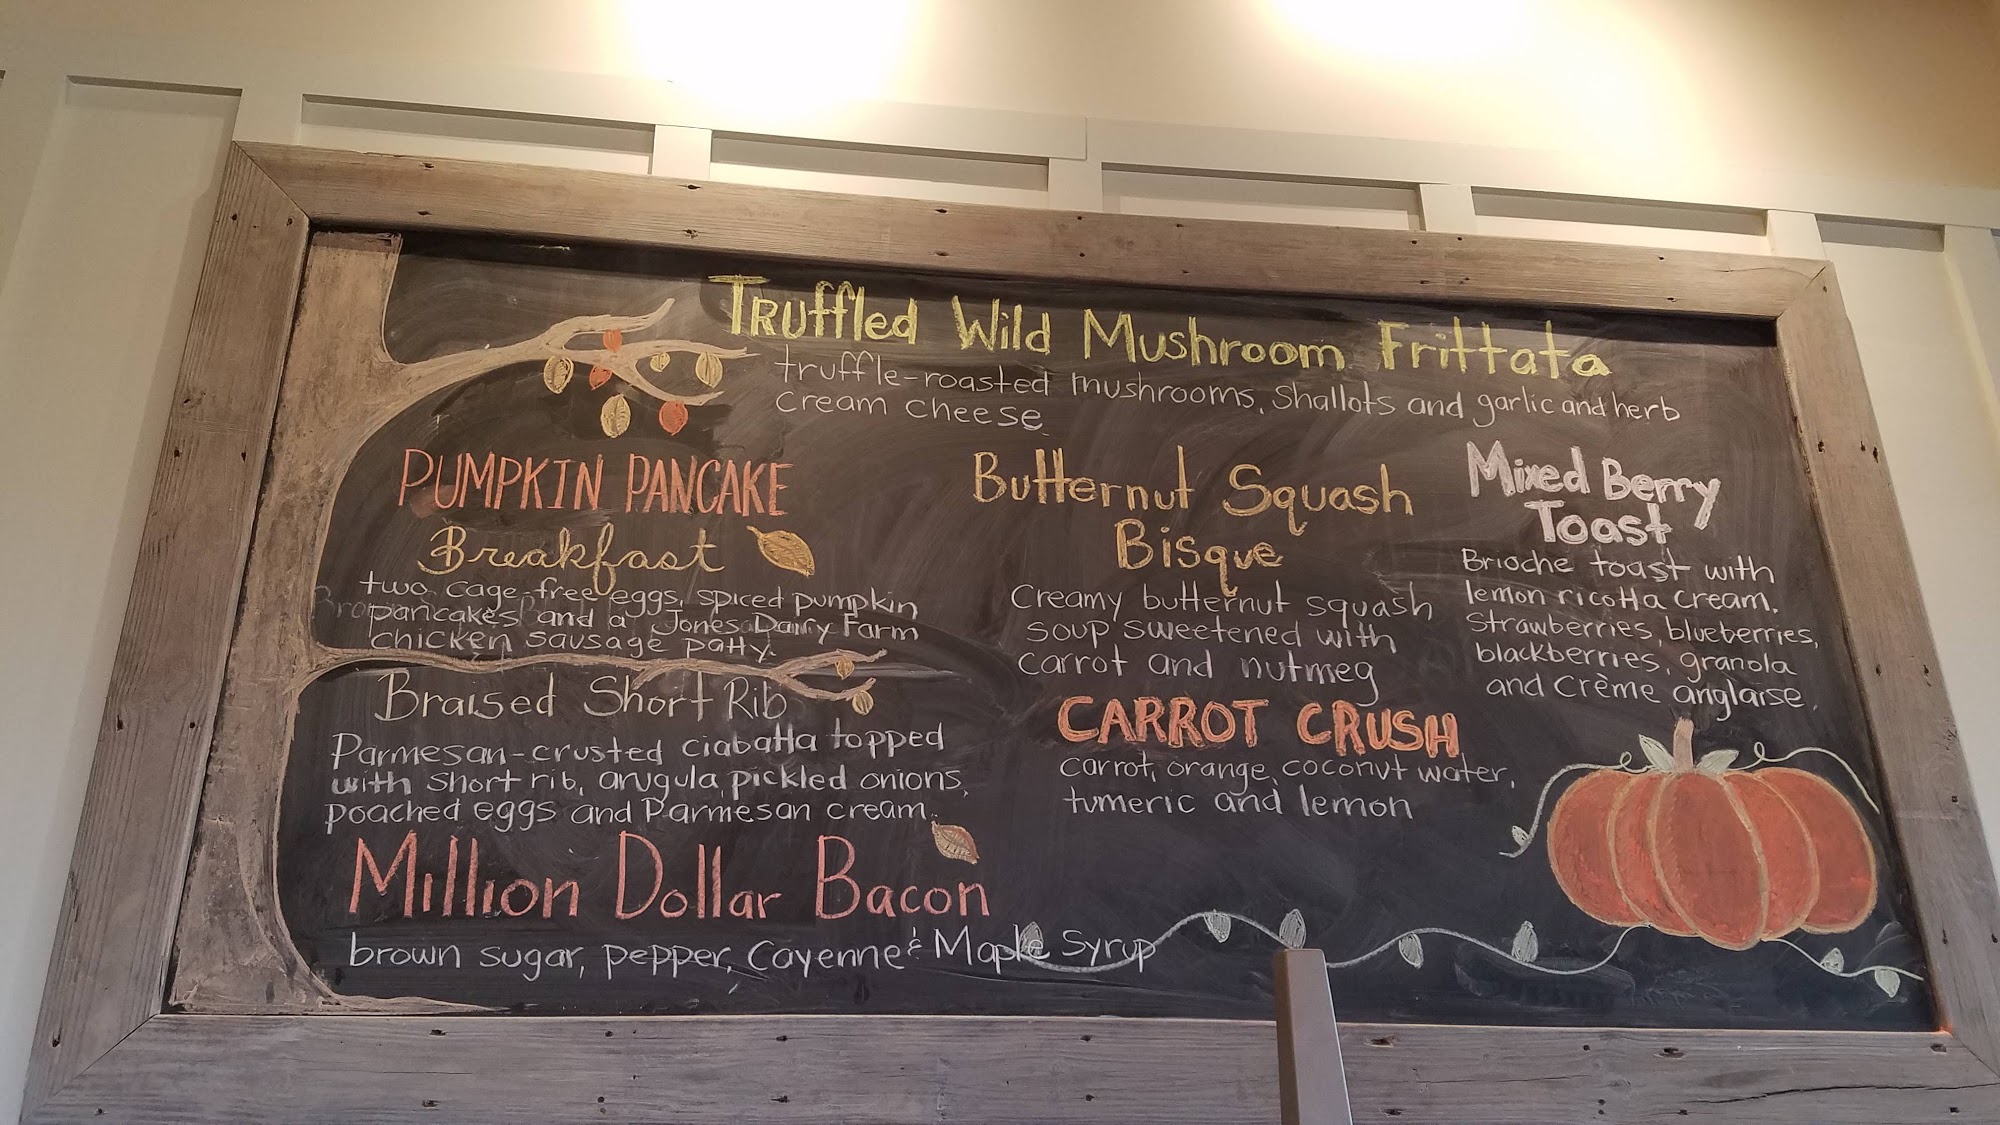 Truffled Wild Mushroom Frittata
truffle-roasted mushrooms, Shallots and garlic and herb
cream cheese
PUMPKIN PANCAKE
Breakfast
two cage-free eggs, spiced pumpkin
pancakes and a Jones Dairy Farm
chicken sausage patty.
Braised Short Rib
Parmesan-crusted ciabatta topped
with short rib, arugula, pickled onions,
poached eggs and Parmesan cream.
Million Dollar Bacon
brown sugar, pepper, Cayenne & Maple Syrup
Butternut Squash
Bisque
Creamy butternut squash
soup sweetened with
carrot and nutmeg
CARROT CRUSH
carrot, orange, coconut water,
tumeric and lemon
Mixed Berry
Toast
Brioche toast with
lemon ricotta cream.
Strawberries, blueberries,
blackberries, granola
and Crème anglaise.